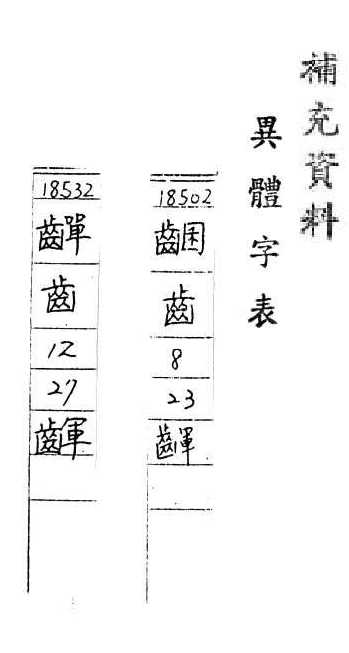 補充資料
異體字表
18502
齫
齒
8
23
齳
18532
齒
12
27
齳